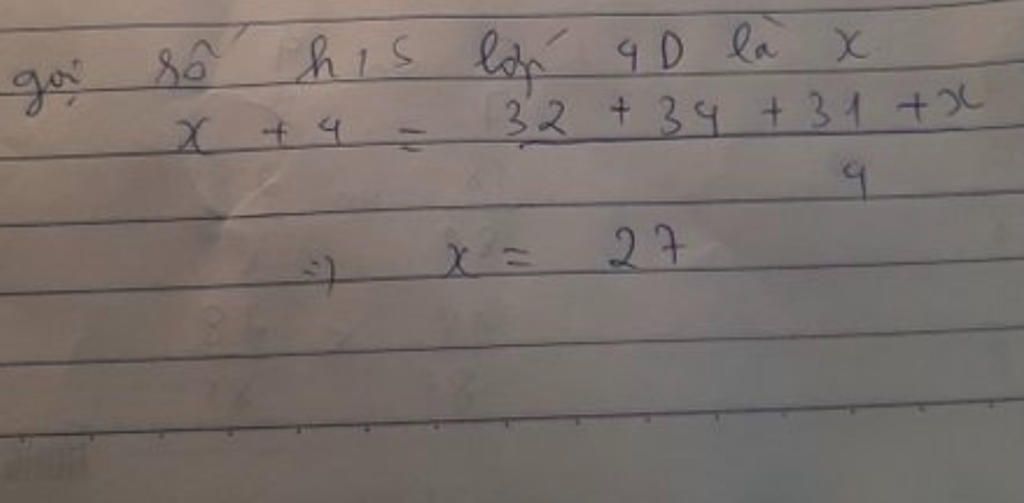 gọi số h/s lớp 4D là x
x + 4 = 32 + 34 + 31 + x
4
=> x = 27